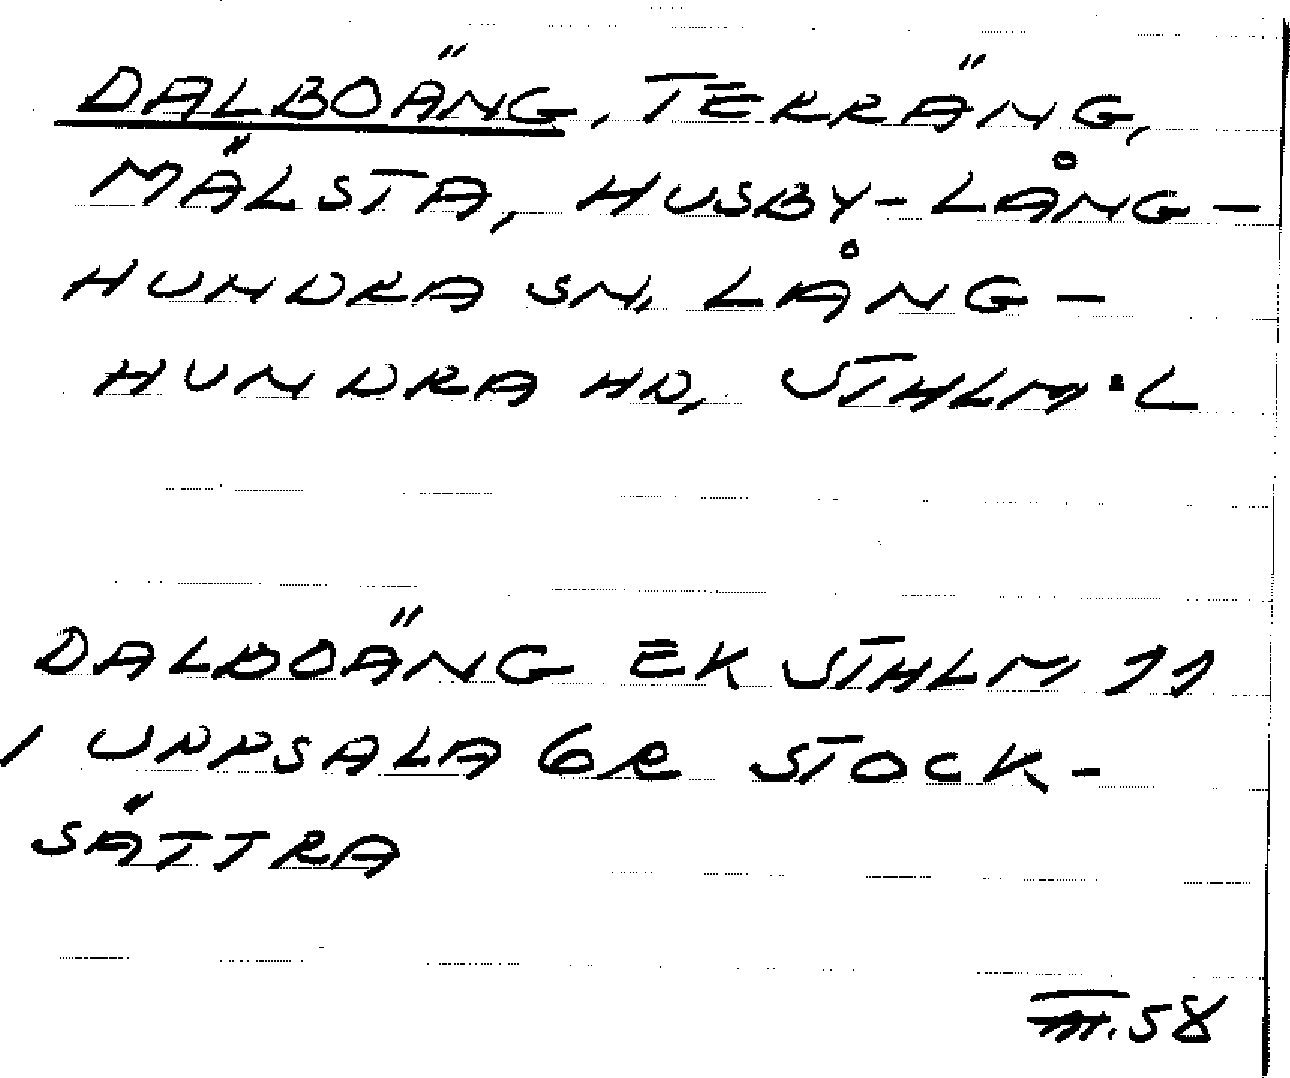 DALBOÄNG, TERRÄNG,
MÄLSTA, HUSBY-LÅNG-
HUNDRA SN, LÅNG-
HUNDRA HD, STHLM·L
DALBOÄNG EK STHLM 11
1 UPPSALA GR STOCK-
SÄTTRA
III.58